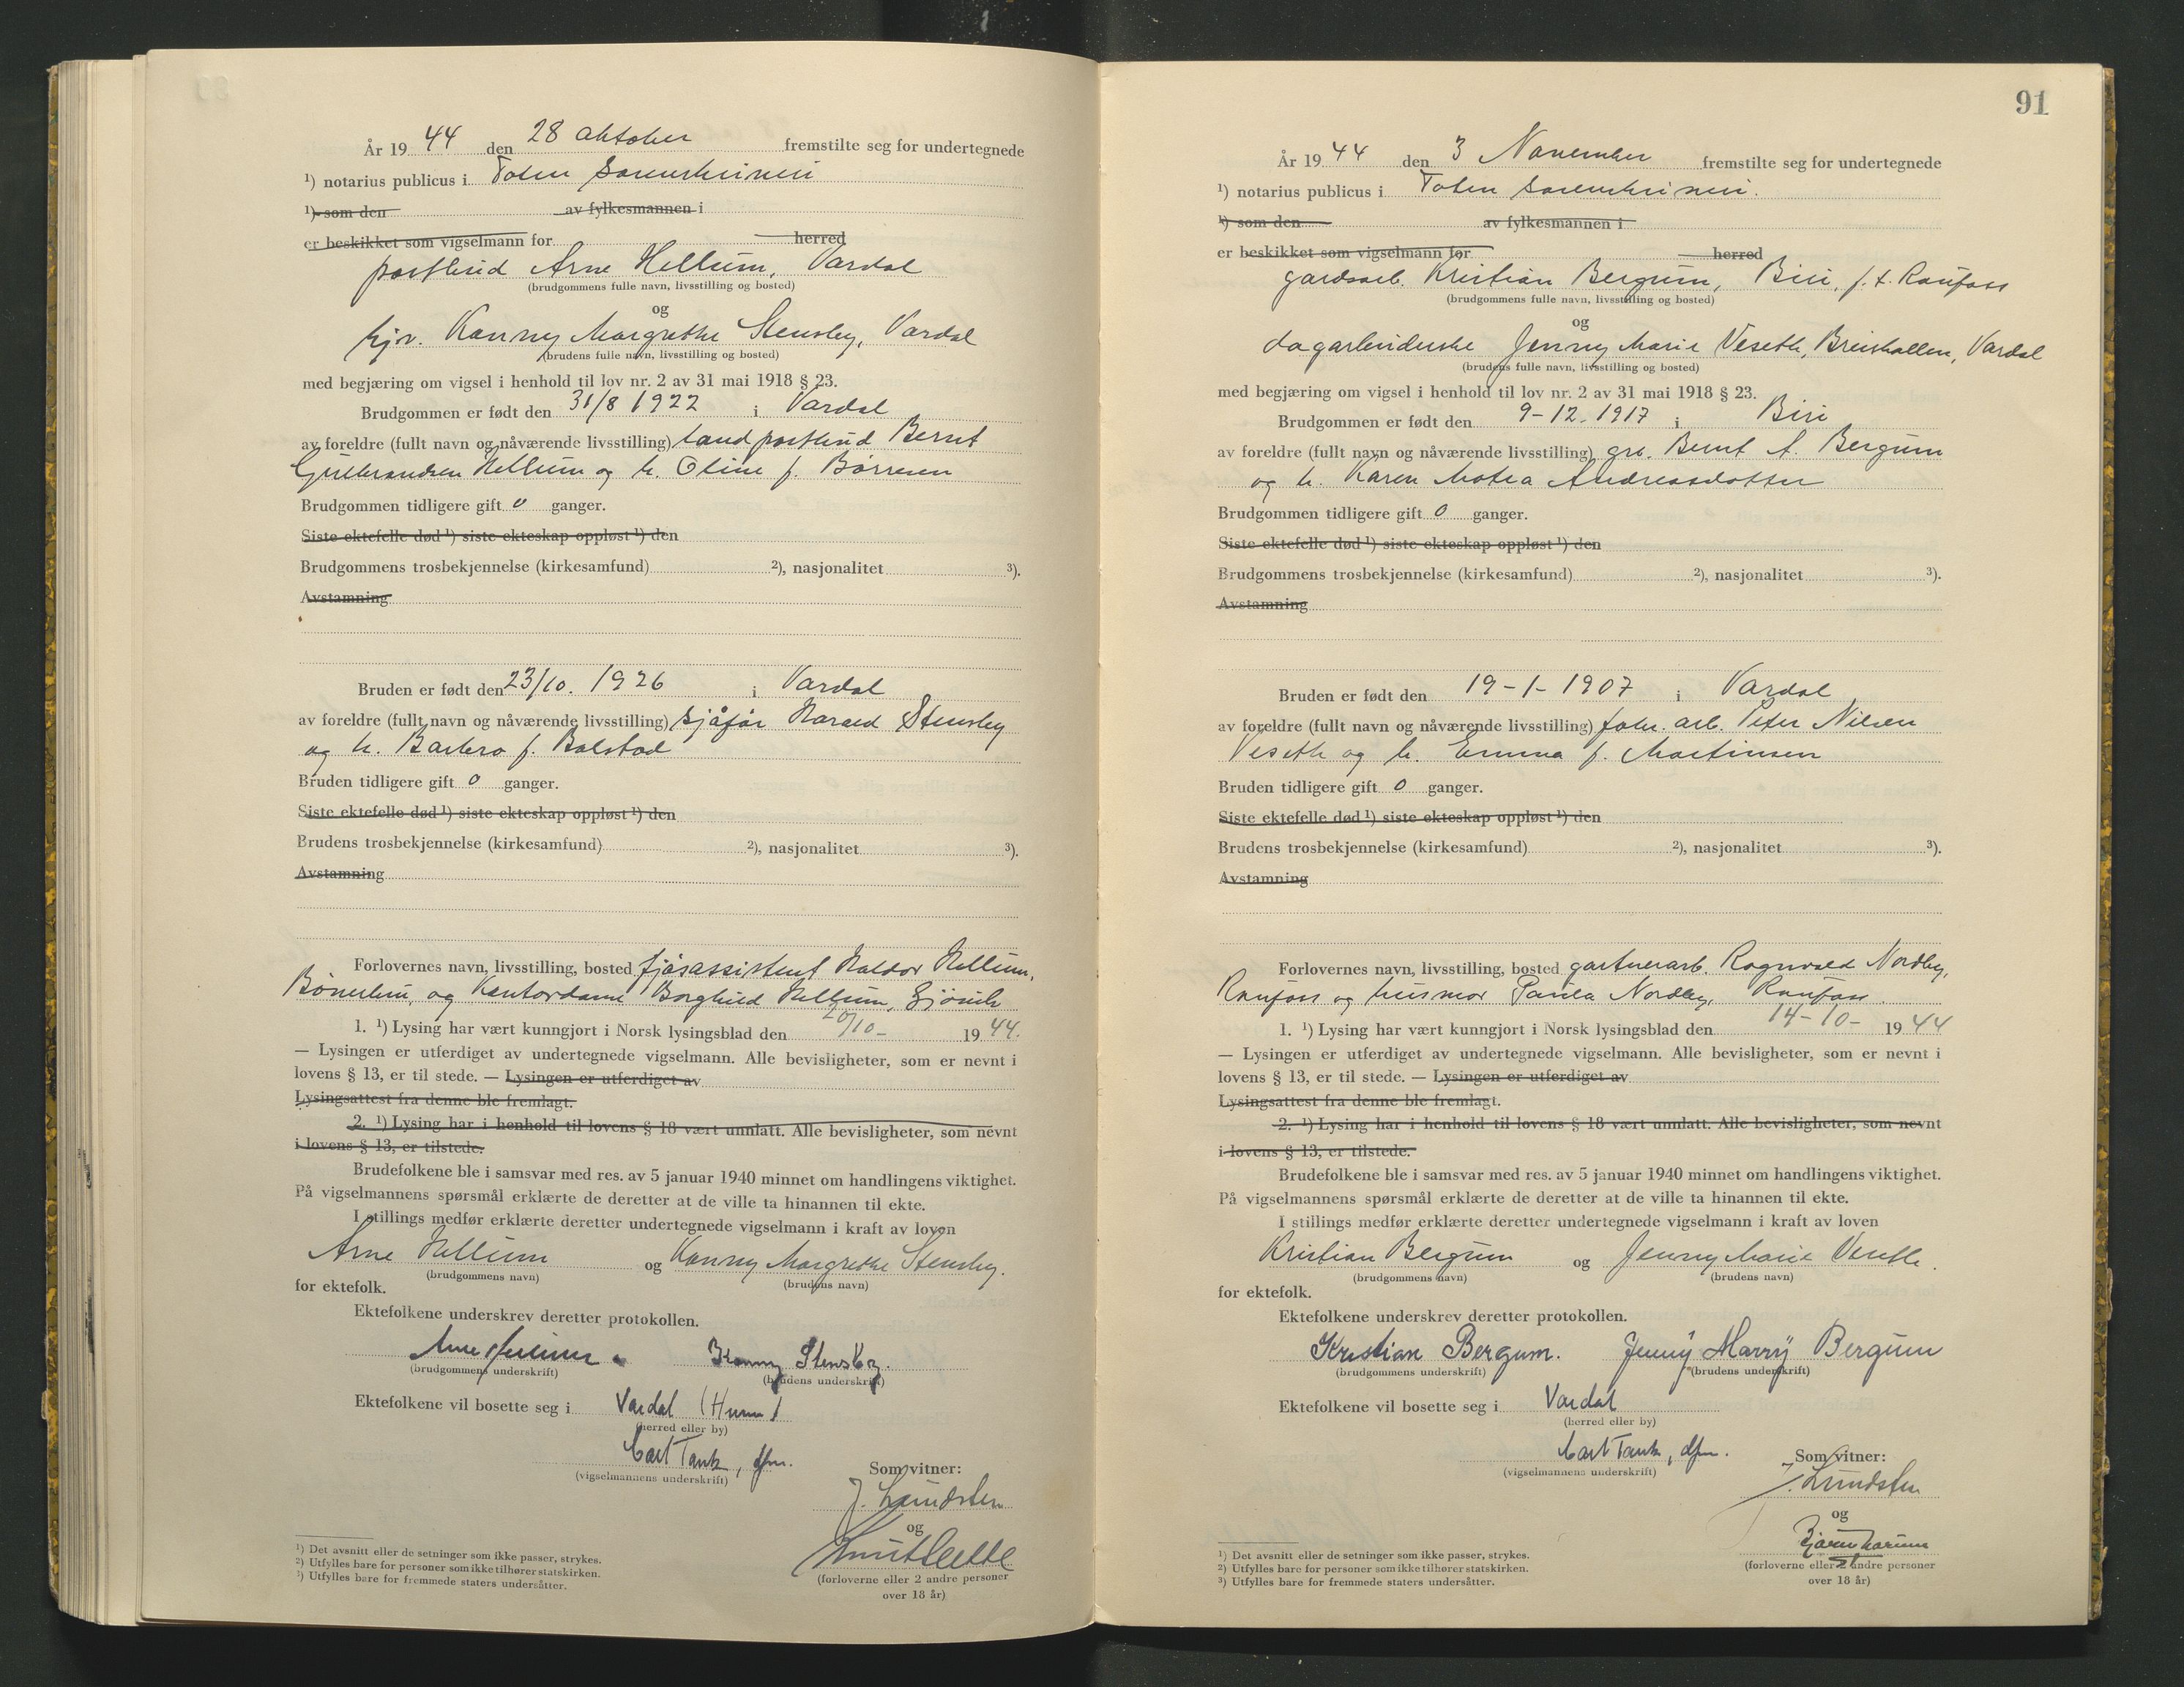 År 19 44 den 28 oktober fremstilte seg for undertegnede
¹) notarius publicus i Toten Sorenskriveri
¹) som den av fylkesmannen i
er beskikket som vigselmann for herred
postbud Arne Hellum, Vardal
(brudgommens fulle navn, livsstilling og bosted)
og
hjv. Kanny Margrethe Stensby, Vardal
(brudens fulle navn, livsstilling og bosted)
med begjæring om vigsel i henhold til lov nr. 2 av 31 mai 1918 § 23.
Brudgommen er født den 31/8 1922 i Vardal
av foreldre (fullt navn og nåværende livsstilling) landpostbud Bernt
Gulbrandsen Hellum og h. Oline f. Börresen
Brudgommen tidligere gift 0 ganger.
Siste ektefelle død ¹) siste ekteskap oppløst ¹) den
Brudgommens trosbekjennelse (kirkesamfund) ²), nasjonalitet ³).
Avstamning
Bruden er født den 23/10. 1926 i Vardal
av foreldre (fullt navn og nåværende livsstilling) sjåför Harald Stensby
og h. Barbro f. Bolstad
Bruden tidligere gift 0 ganger.
Siste ektefelle død ¹) siste ekteskap oppløst ¹) den
Brudens trosbekjennelse (kirkesamfund) ²), nasjonalitet ³).
Avstamning
Forlovernes navn, livsstilling, bosted fjösassistent Haldor Hellum,
og kontordame Borghild Hellum, Gjövik
1. ¹) Lysing har vært kunngjort i Norsk lysingsblad den 20/10- 19 44.
— Lysingen er utferdiget av undertegnede vigselmann. Alle bevisligheter, som er nevnt i
lovens § 13, er til stede. — Lysingen er utferdiget av
Lysingsattest fra denne ble fremlagt.
2. ¹) Lysing har i henhold til lovens § 18 vært unnlatt. Alle bevisligheter, som nevnt
i lovens § 13, er tilstede.
Brudefolkene ble i samsvar med res. av 5 januar 1940 minnet om handlingens viktighet.
På vigselmannens spørsmål erklærte de deretter at de ville ta hinannen til ekte.
I stillings medfør erklærte deretter undertegnede vigselmann i kraft av loven
Arne Hellum og Kanny Margrethe Stensby.
(brudgommens navn) (brudens navn)
for ektefolk.
Ektefolkene underskrev deretter protokollen.
Arne Hellum Kanny Stensby.
(brudgommens underskrift) (brudens underskrift)
Ektefolkene vil bosette seg i Vardal (Hunn)
(herred eller by)
Carl Tank, dfm.
(vigselmannens underskrift)
Som vitner:
J. Lundsten
og
(forloverne eller 2 andre personer
over 18 år)
¹) Det avsnitt eller de setninger som ikke passer, strykes.
²) Utfylles bare for personer som ikke tilhører statskirken.
³) Utfylles bare for fremmede staters undersåtter.
91
År 19 44 den 3 November fremstilte seg for undertegnede
¹) notarius publicus i Toten Sorenskriveri.
¹) som den av fylkesmannen i
er beskikket som vigselmann for herred
gardsarb. Kristian Bergum, Biri, f. t. Raufoss
(brudgommens fulle navn, livsstilling og bosted)
og
dagarbeiderske Jenny Marie Veseth, Breiskallen, Vardal
(brudens fulle navn, livsstilling og bosted)
med begjæring om vigsel i henhold til lov nr. 2 av 31 mai 1918 § 23.
Brudgommen er født den 9-12. 1917 i Biri
av foreldre (fullt navn og nåværende livsstilling) grb. Bernt A. Bergum
og h. Karen Matea Andreasdotter
Brudgommen tidligere gift 0 ganger.
Siste ektefelle død ¹) siste ekteskap oppløst ¹) den
Brudgommens trosbekjennelse (kirkesamfund) ²), nasjonalitet ³).
Avstamning
Bruden er født den 19-1-1907 i Vardal
av foreldre (fullt navn og nåværende livsstilling) fabr. arb. Peter Nilsen
Veseth og h. Emma f. Martinsen
Bruden tidligere gift 0 ganger.
Siste ektefelle død ¹) siste ekteskap oppløst ¹) den
Brudens trosbekjennelse (kirkesamfund) ²), nasjonalitet ³).
Avstamning
Forlovernes navn, livsstilling, bosted gartnerarb. Ragnvald Nordby,
Raufoss og husmor Paula Nordby, Raufoss.
1. ¹) Lysing har vært kunngjort i Norsk lysingsblad den 14-10- 19 44
— Lysingen er utferdiget av undertegnede vigselmann. Alle bevisligheter, som er nevnt i
lovens § 13, er til stede. — Lysingen er utferdiget av
Lysingsattest fra denne ble fremlagt.
2. ¹) Lysing har i henhold til lovens § 18 vært unnlatt. Alle bevisligheter, som nevnt
i lovens § 13, er tilstede.
Brudefolkene ble i samsvar med res. av 5 januar 1940 minnet om handlingens viktighet.
På vigselmannens spørsmål erklærte de deretter at de ville ta hinannen til ekte.
I stillings medfør erklærte deretter undertegnede vigselmann i kraft av loven
Kristian Bergum og Jenny Marie Veseth.
(brudgommens navn) (brudens navn)
for ektefolk.
Ektefolkene underskrev deretter protokollen.
Kristian Bergum. Jenny Marry Bergum
(brudgommens underskrift) (brudens underskrift)
Ektefolkene vil bosette seg i Vardal
(herred eller by)
Carl Tank, dfm.
(vigselmannens underskrift)
Som vitner:
J. Lundsten
og
(forloverne eller 2 andre personer
over 18 år)
¹) Det avsnitt eller de setninger som ikke passer, strykes.
²) Utfylles bare for personer som ikke tilhører statskirken.
³) Utfylles bare for fremmede staters undersåtter.